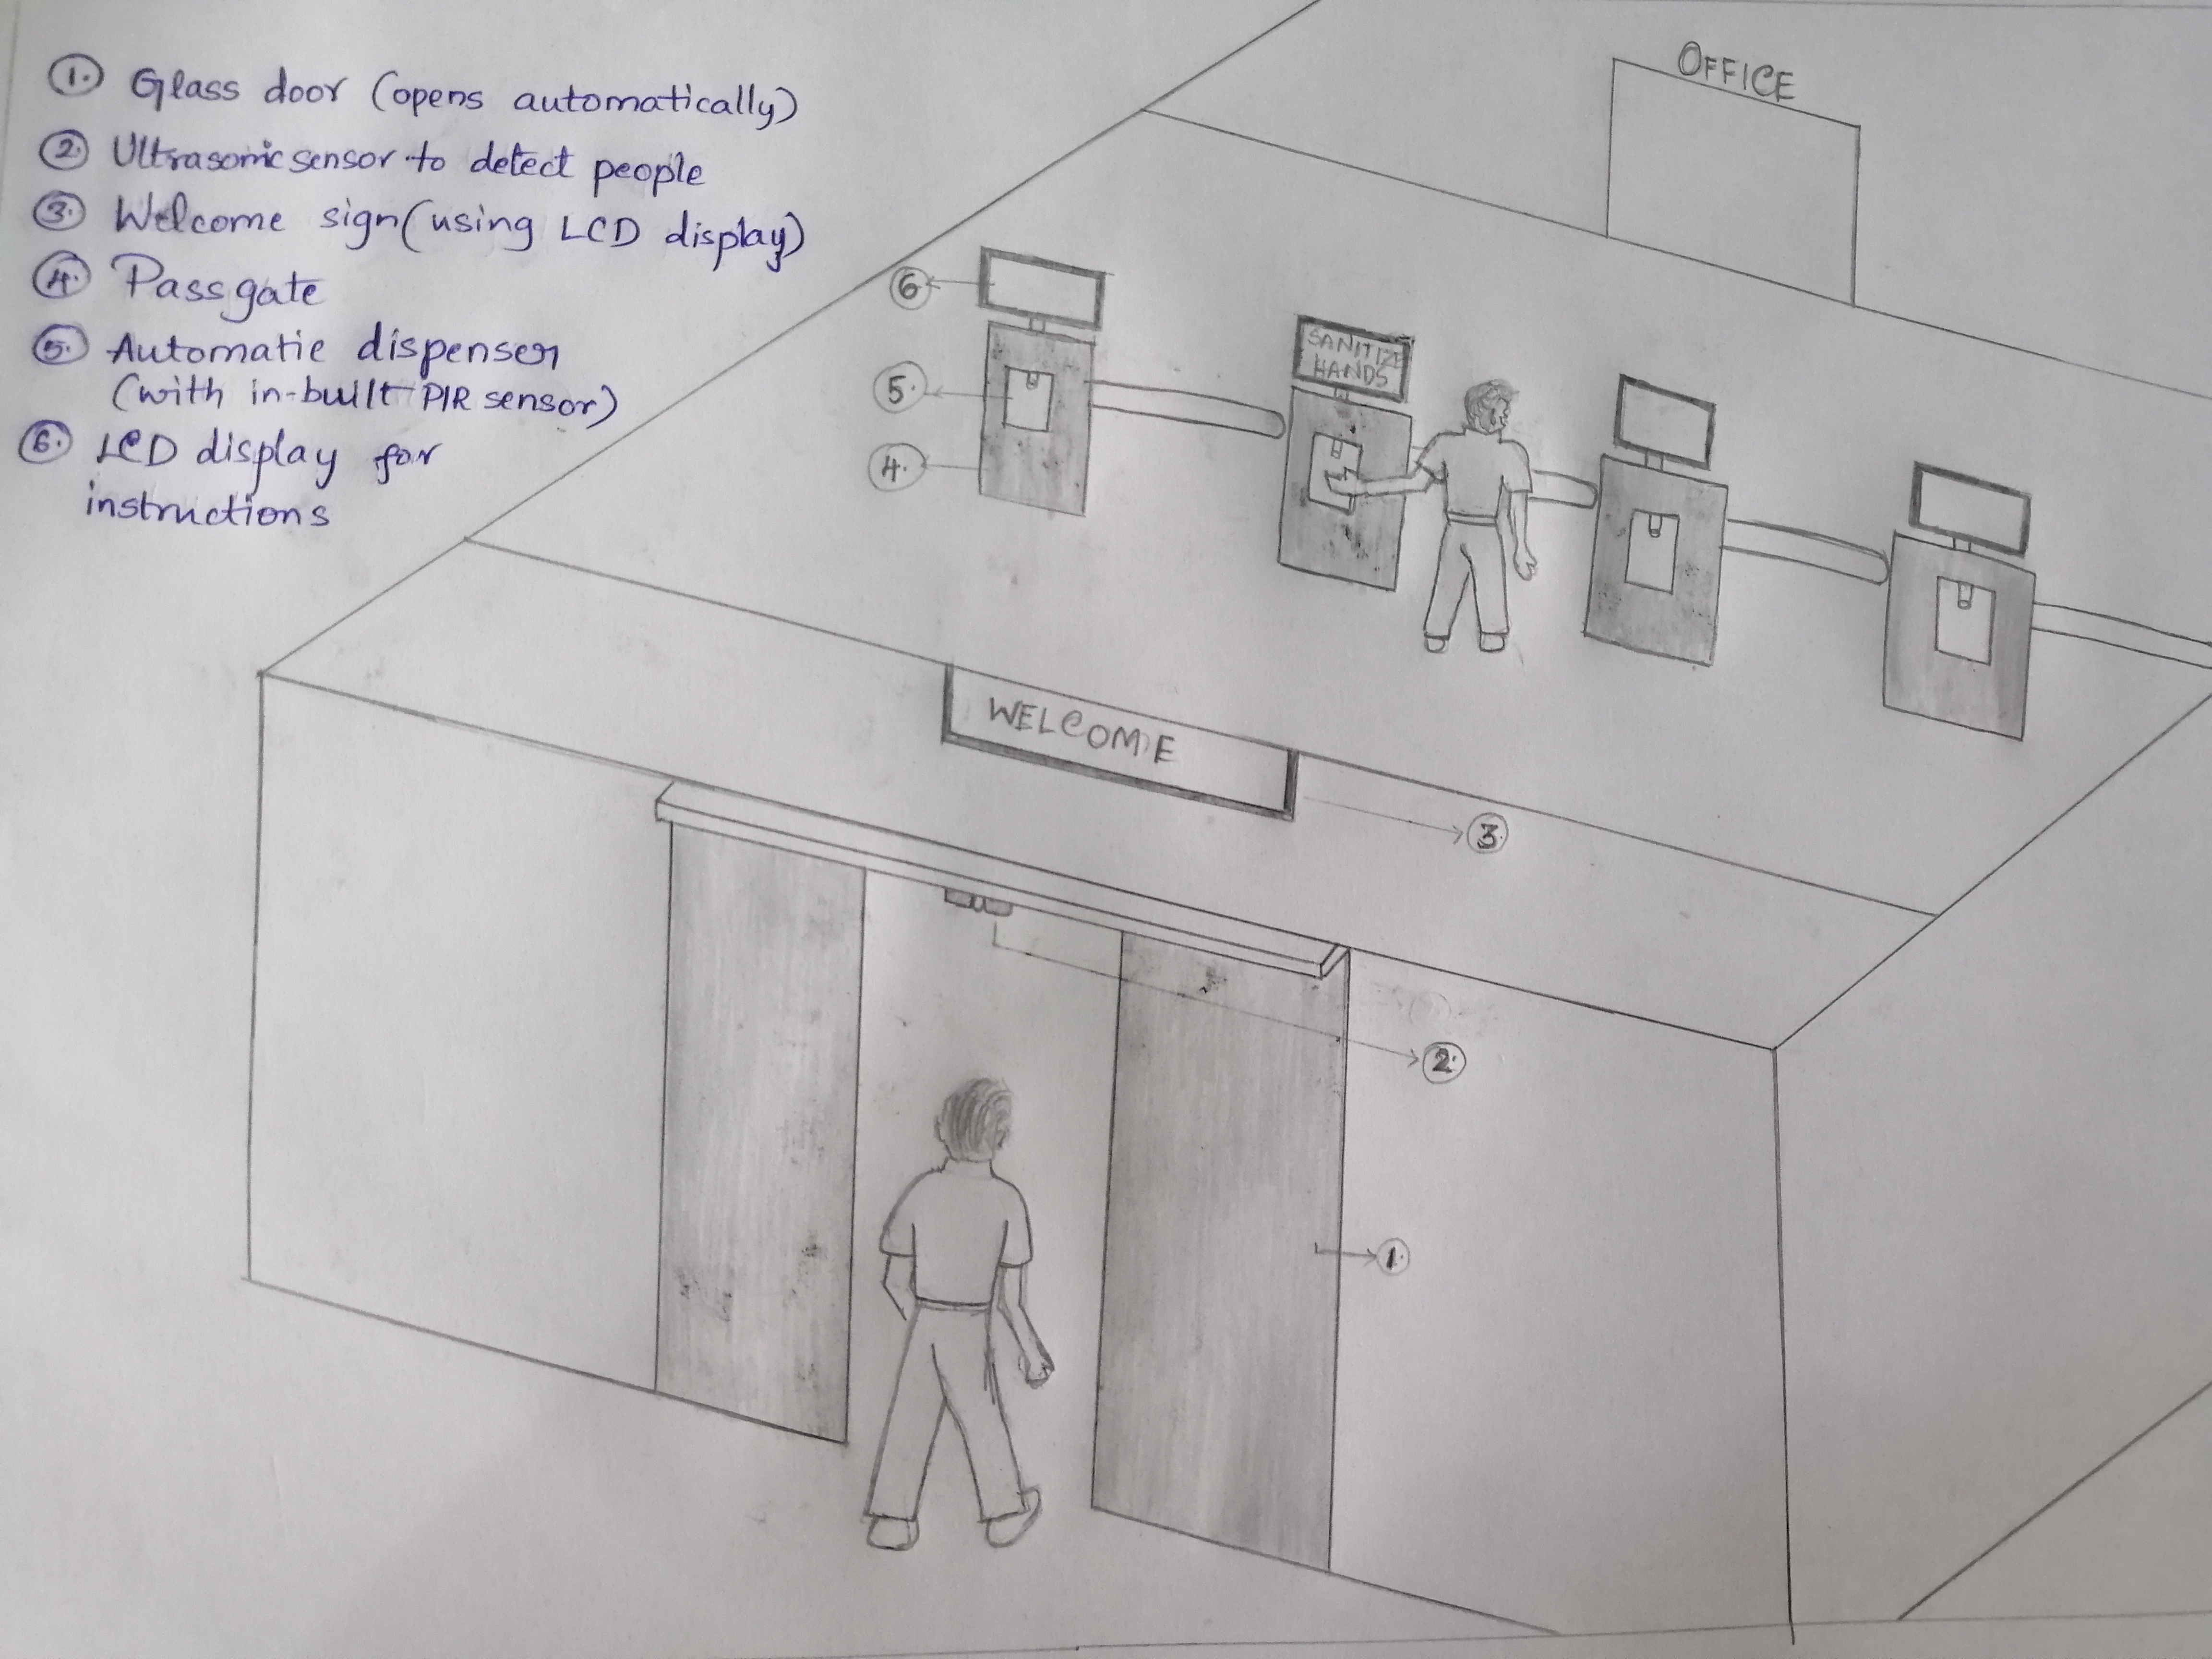 1. Glass door (opens automatically)
2. Ultrasonic sensor to detect people
3. Welcome sign (using LCD display)
4. Pass gate
5. Automatic dispenser
(with in-built PIR sensor)
6. LCD display for
instructions
OFFICE
6.
SANITIZE
HANDS
5.
4.
WELCOME
3.
2.
1.